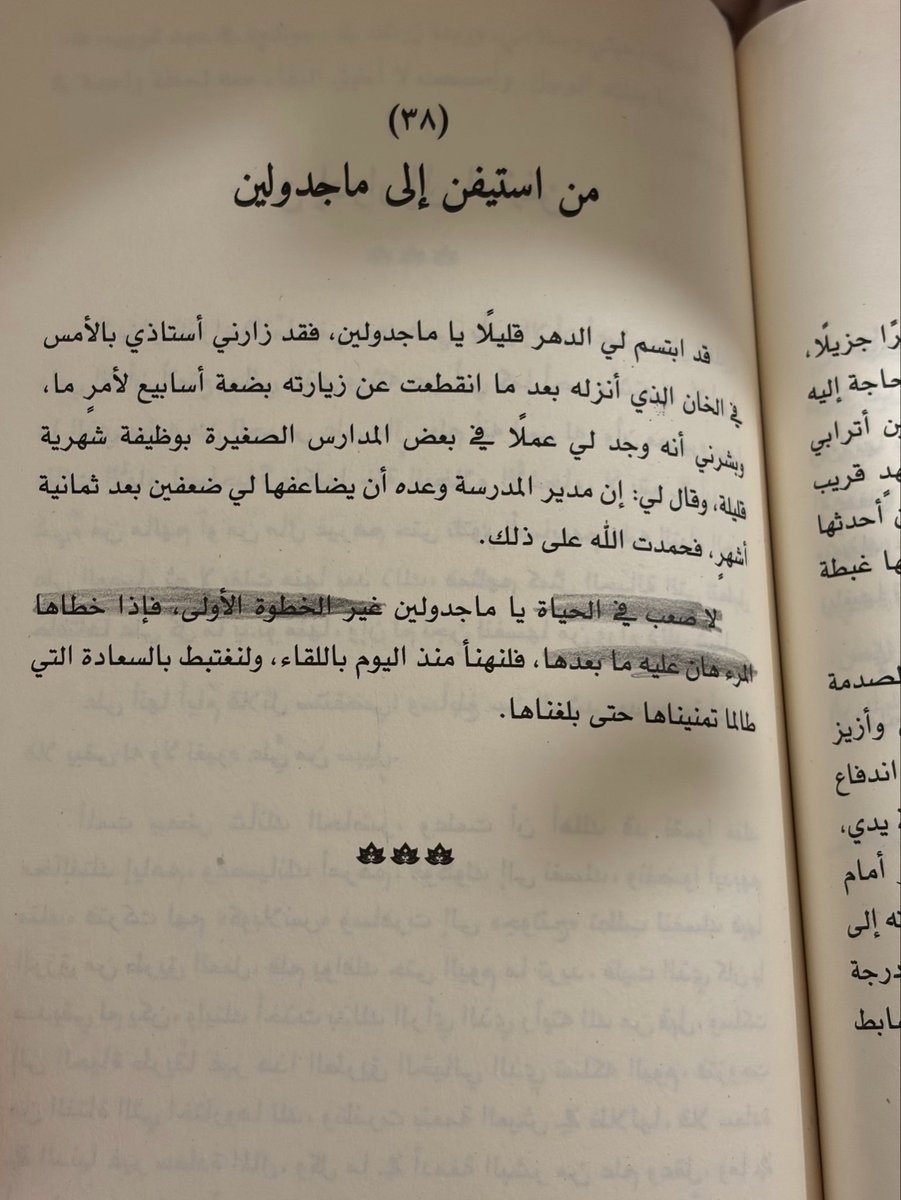 (٣٨)
من استيفن إلى ماجدولين
قد ابتسم لي الدهر قليلًا يا ماجدولين، فقد زارني أستاذي بالأمس
في الخان الذي أنزله بعد ما انقطعت عن زيارته بضعة أسابيع لأمرٍ ما،
وبشرني أنه وجد لي عملًا في بعض المدارس الصغيرة بوظيفة شهرية
قليلة، وقال لي: إن مدير المدرسة وعده أن يضاعفها لي ضعفين بعد ثمانية
أشهرٍ، فحمدت الله على ذلك.
لا صعب في الحياة يا ماجدولين غير الخطوة الأولى، فإذا خطاها
المرء هان عليه ما بعدها، فلنهنأ منذ اليوم باللقاء، ولنغتبط بالسعادة التي
طالما تمنيناها حتى بلغناها.
جزيلًا،
حاجة إليه
أترابي
قريب
أحدثها
غبطة
لصدمة
وأزيز
اندفاع
يدي،
أمام
إلى